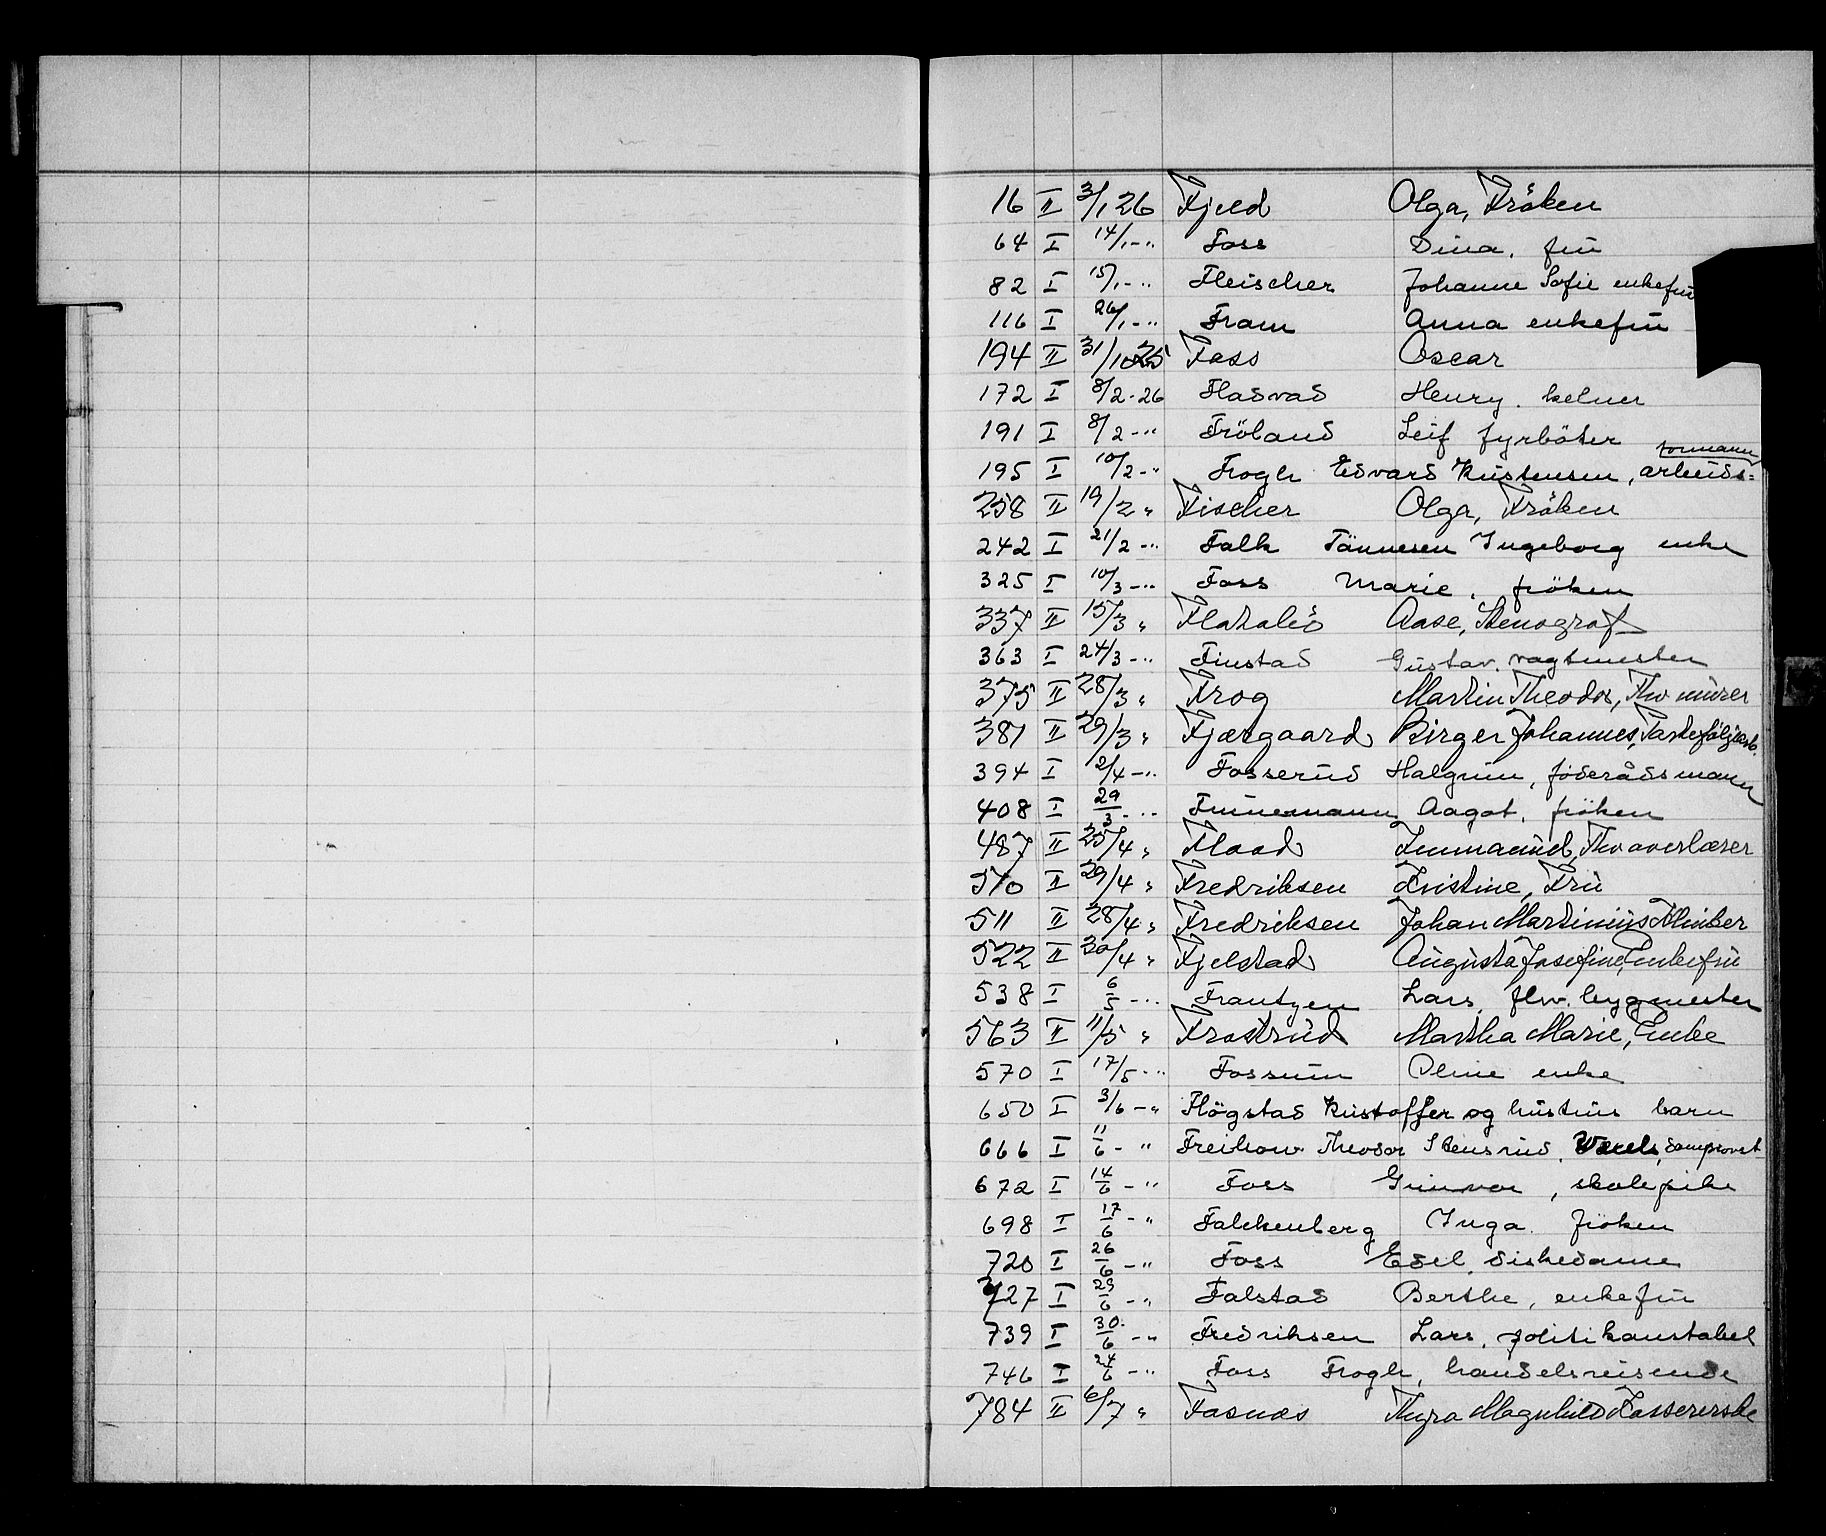 16 II 3/1 26 Fjeld Olga, Fröken
64 I 14/1 -" Foss Dina, frü
82 I 15/1 -" Fleischer Johanne Sofie enkefrü
116 I 26/1 -" Fram Anna enkefrü
194 II 31/10 25 Foss Oscar
172 I 8/2 - 26 Fladvad Henry. kelner
191 I 8/2 -" Fröland Leif fyrböter
195 I 10/2 -" Frogh Edvard Kristensen, arbeids= formann
258 II 19/2 " Fischer Olga, Fröken
242 I 21/2 -" Falk Tönnesen Ingeborg enke
325 I 10/3 -" Foss Marie, fröken
337 II 15/3 " Aase, Stenograf
363 I 24/3 -" Finstad Güstav. vagtmester
375 II 28/3 " Frog Martin Theodor, Fhv mürer
381 II 29/3 " Fjærgaard Birger Johannes,
394 I 2/4 -" Fosserüd Halgrim, föderådsmann
408 I 29/3 -" Aagot, fröken
487 II 25/4 " Flood Immanüel, Fhv overlærer
510 II 29/4 " Fredriksen Kristine, Frü
511 II 28/4 " Fredriksen Johan Martiniüs
522 II 30/4 " Fjelstad Aügüsta Josefine, Enkefrü
538 I 6/5 -" Frantzen Lars, fhv. bygmester
563 II 11/5 " Frostrüd Martha Marie, Enke
570 I 17/5 -" Fossüm Oline enke
650 I 3/6 -" Flögstad Kristoffer og hüstrüs barn
666 I 11/6 - " Theodor Stensrüd, Wexels, domprovst
672 I 14/6 -" Foss Günvor, skolepike
698 I 17/6 -" Falckenberg Inga. fröken
720 I 26/6 -" Foss Edel, diskedame
727 I 29/6 -" Falstad Berthe, enkefrü
739 I 30/6 -" Fredriksen Lars, politikonstabel
746 I 24/6 -" Foss Frogh, handelsreisende
784 II 6/7 " Fosnæs Thyra Magnhild Kassererske